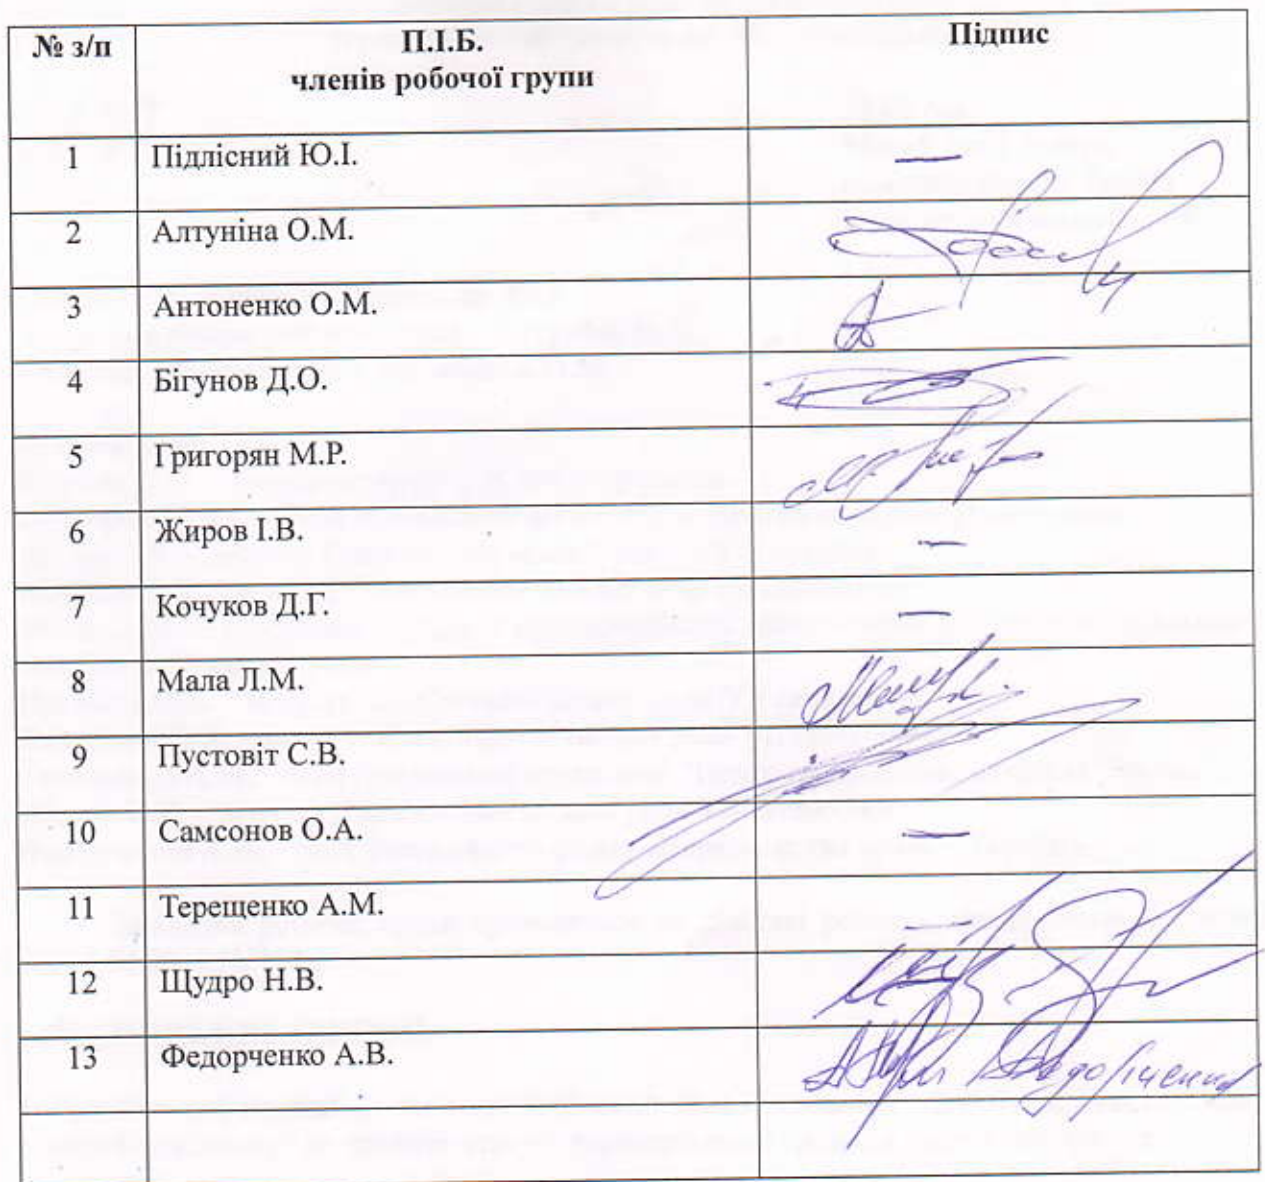 № з/п П.І.Б. Підпис
членів робочої групи
1 Підлісний Ю.І. —
2 Алтуніна О.М.
3 Антоненко О.М.
4 Бігунов Д.О.
5 Григорян М.Р.
6 Жиров І.В. —
7 Кочуков Д.Г. —
8 Мала Л.М.
9 Пустовіт С.В.
10 Самсонов О.А. —
11 Терещенко А.М. —
12 Щудро Н.В.
13 Федорченко А.В.